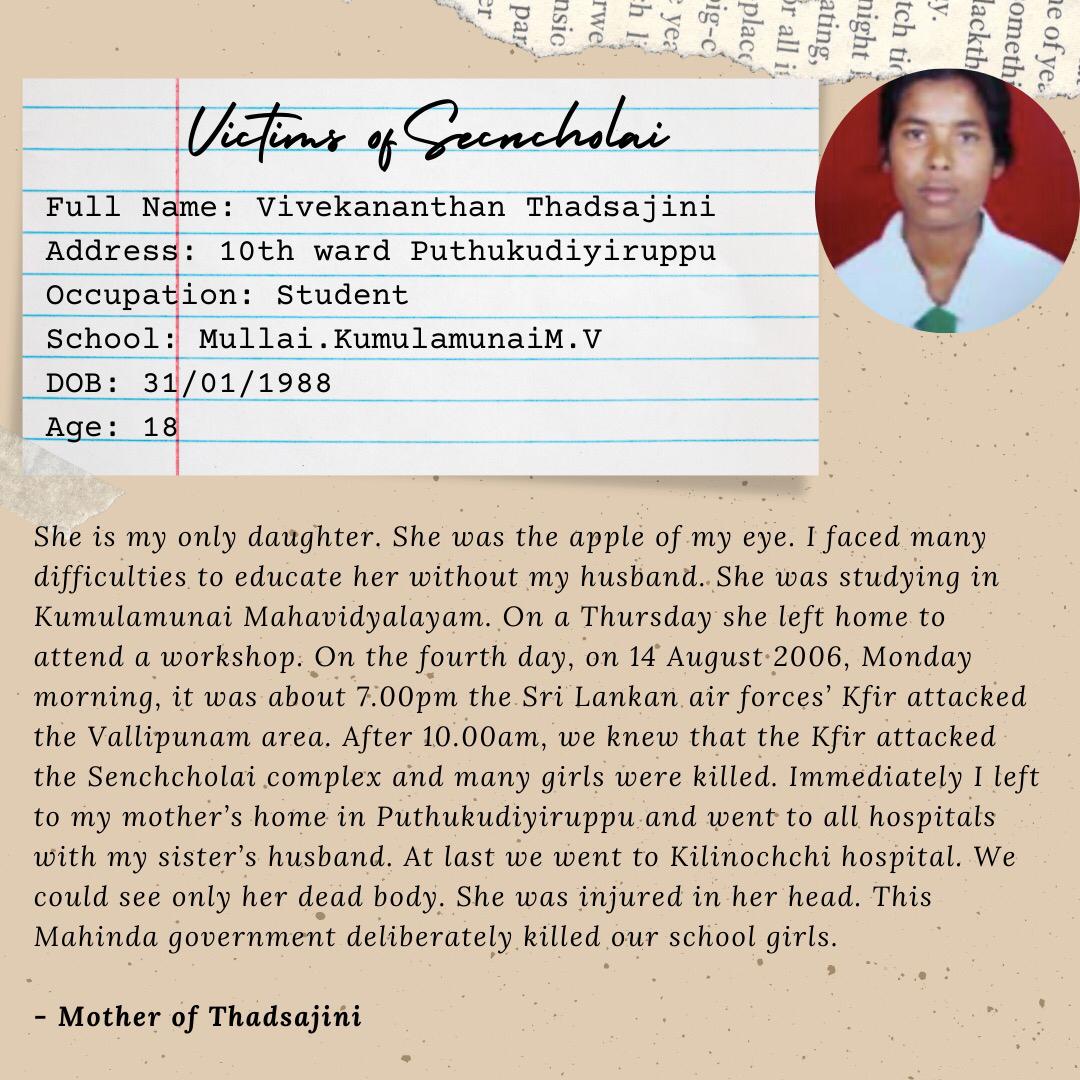 Victims of Secncholai
Full Name: Vivekananthan Thadsajini
Address: 10th ward Puthukudiyiruppu
Occupation: Student
School: Mullai.KumulamunaiM.V
DOB: 31/01/1988
Age: 18
She is my only daughter. She was the apple of my eye. I faced many
difficulties to educate her without my husband. She was studying in
Kumulamunai Mahavidyalayam. On a Thursday she left home to
attend a workshop. On the fourth day, on 14 August 2006, Monday
morning, it was about 7.00pm the Sri Lankan air forces’ Kfir attacked
the Vallipunam area. After 10.00am, we knew that the Kfir attacked
the Senchcholai complex and many girls were killed. Immediately I left
to my mother’s home in Puthukudiyiruppu and went to all hospitals
with my sister’s husband. At last we went to Kilinochchi hospital. We
could see only her dead body. She was injured in her head. This
Mahinda government deliberately killed our school girls.
– Mother of Thadsajini